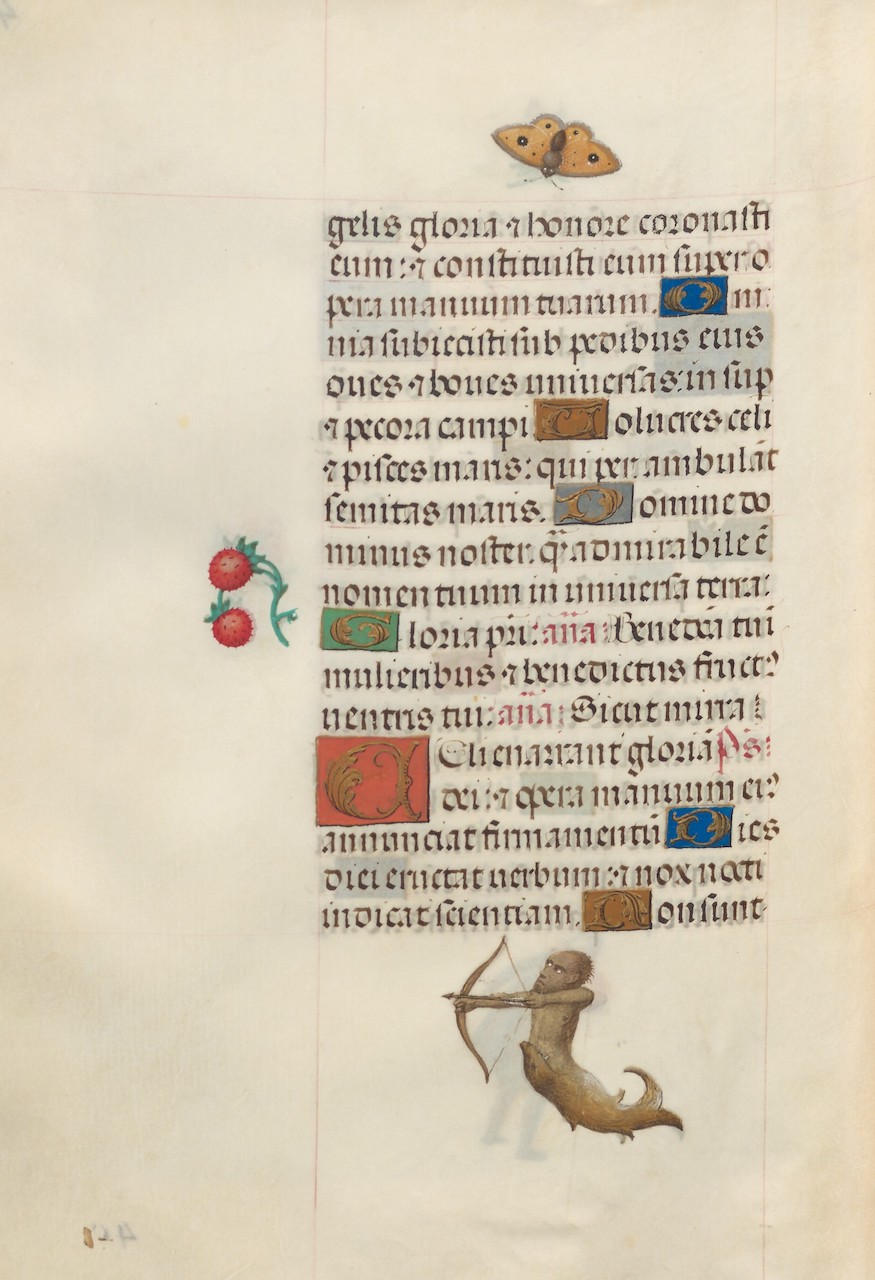 gelis gloria ⁊ honore coronasti
eum: ⁊ constituisti eum super o
pera manuum tuarum. Om
nia subiecisti sub pedibus eius
oues ⁊ boues uniuersas: in sup
⁊ pecora campi Uolucres celi
⁊ pisces maris: qui per ambulāt
semitas maris. Domine do
minus noster. q̄ admirabile ē
nomen tuum in uniuersa terra:
Gloria pr̄i: an̄a: Benedc̄a tu ī
mulieribus ⁊ benedictus fruct9
uentris tui: an̄a: Sicut mirra:
Celi enarrant gloriā Ps:
dei: ⁊ opera manuum ei9
annunciat firmamentū Dies
diei eructat uerbum: ⁊ nox nocti
indicat scientiam. Non sunt